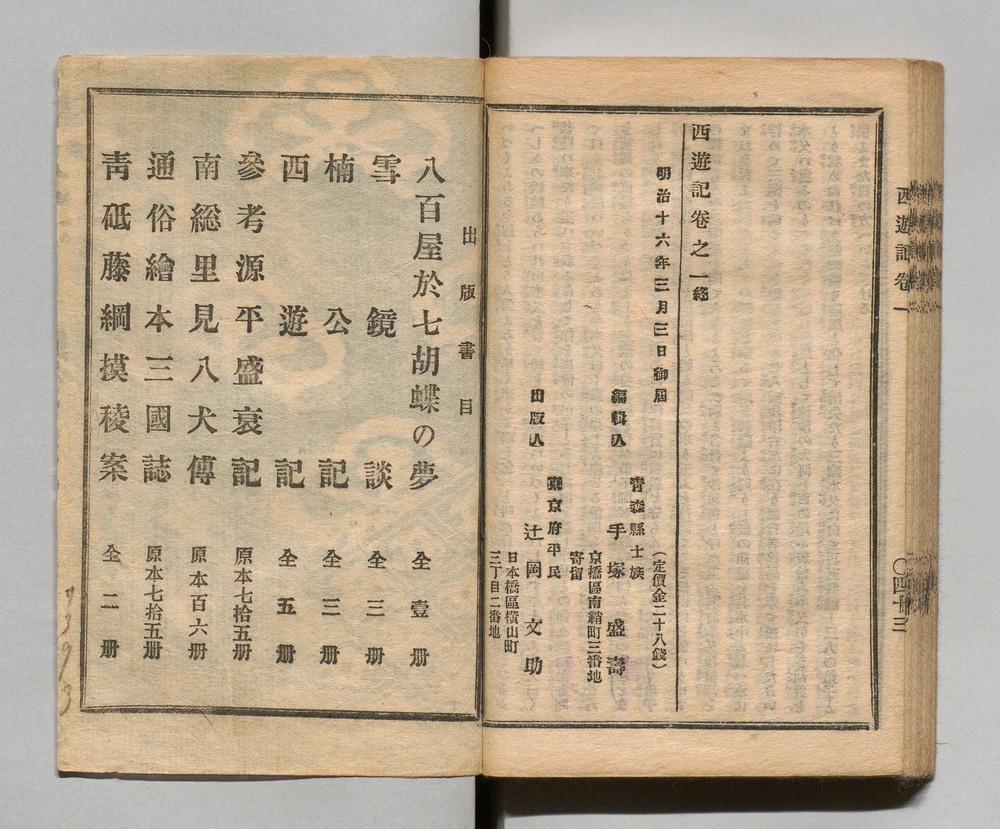 西遊記卷一
〇四十三
西遊記卷之一終
明治十六年三月三日御屆
(定價金二十八錢)
編輯人
青森縣士族
手塚盛壽
京橋區南鞘町三番地
寄留
出版人
東京府平民
辻岡文助
日本橋區橫山町
三丁目二番地
出版書目
八百屋於七胡蝶の夢 全壹册
雪鏡談 全三册
楠公記 全三册
西遊記 全五册
參考源平盛衰記 原本七拾五册
南総里見八犬傳 原本百六册
通俗繪本三國誌 原本七拾五册
靑砥藤綱摸稜案 全二册